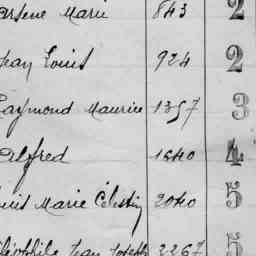 Arsène Marie 843 2
Jean Louis 924 2
Raymond Maurice 1357 3
Alfred 1640 4
Louis Marie Célestin 2040 5
Théophile Jean Joseph 2267 5